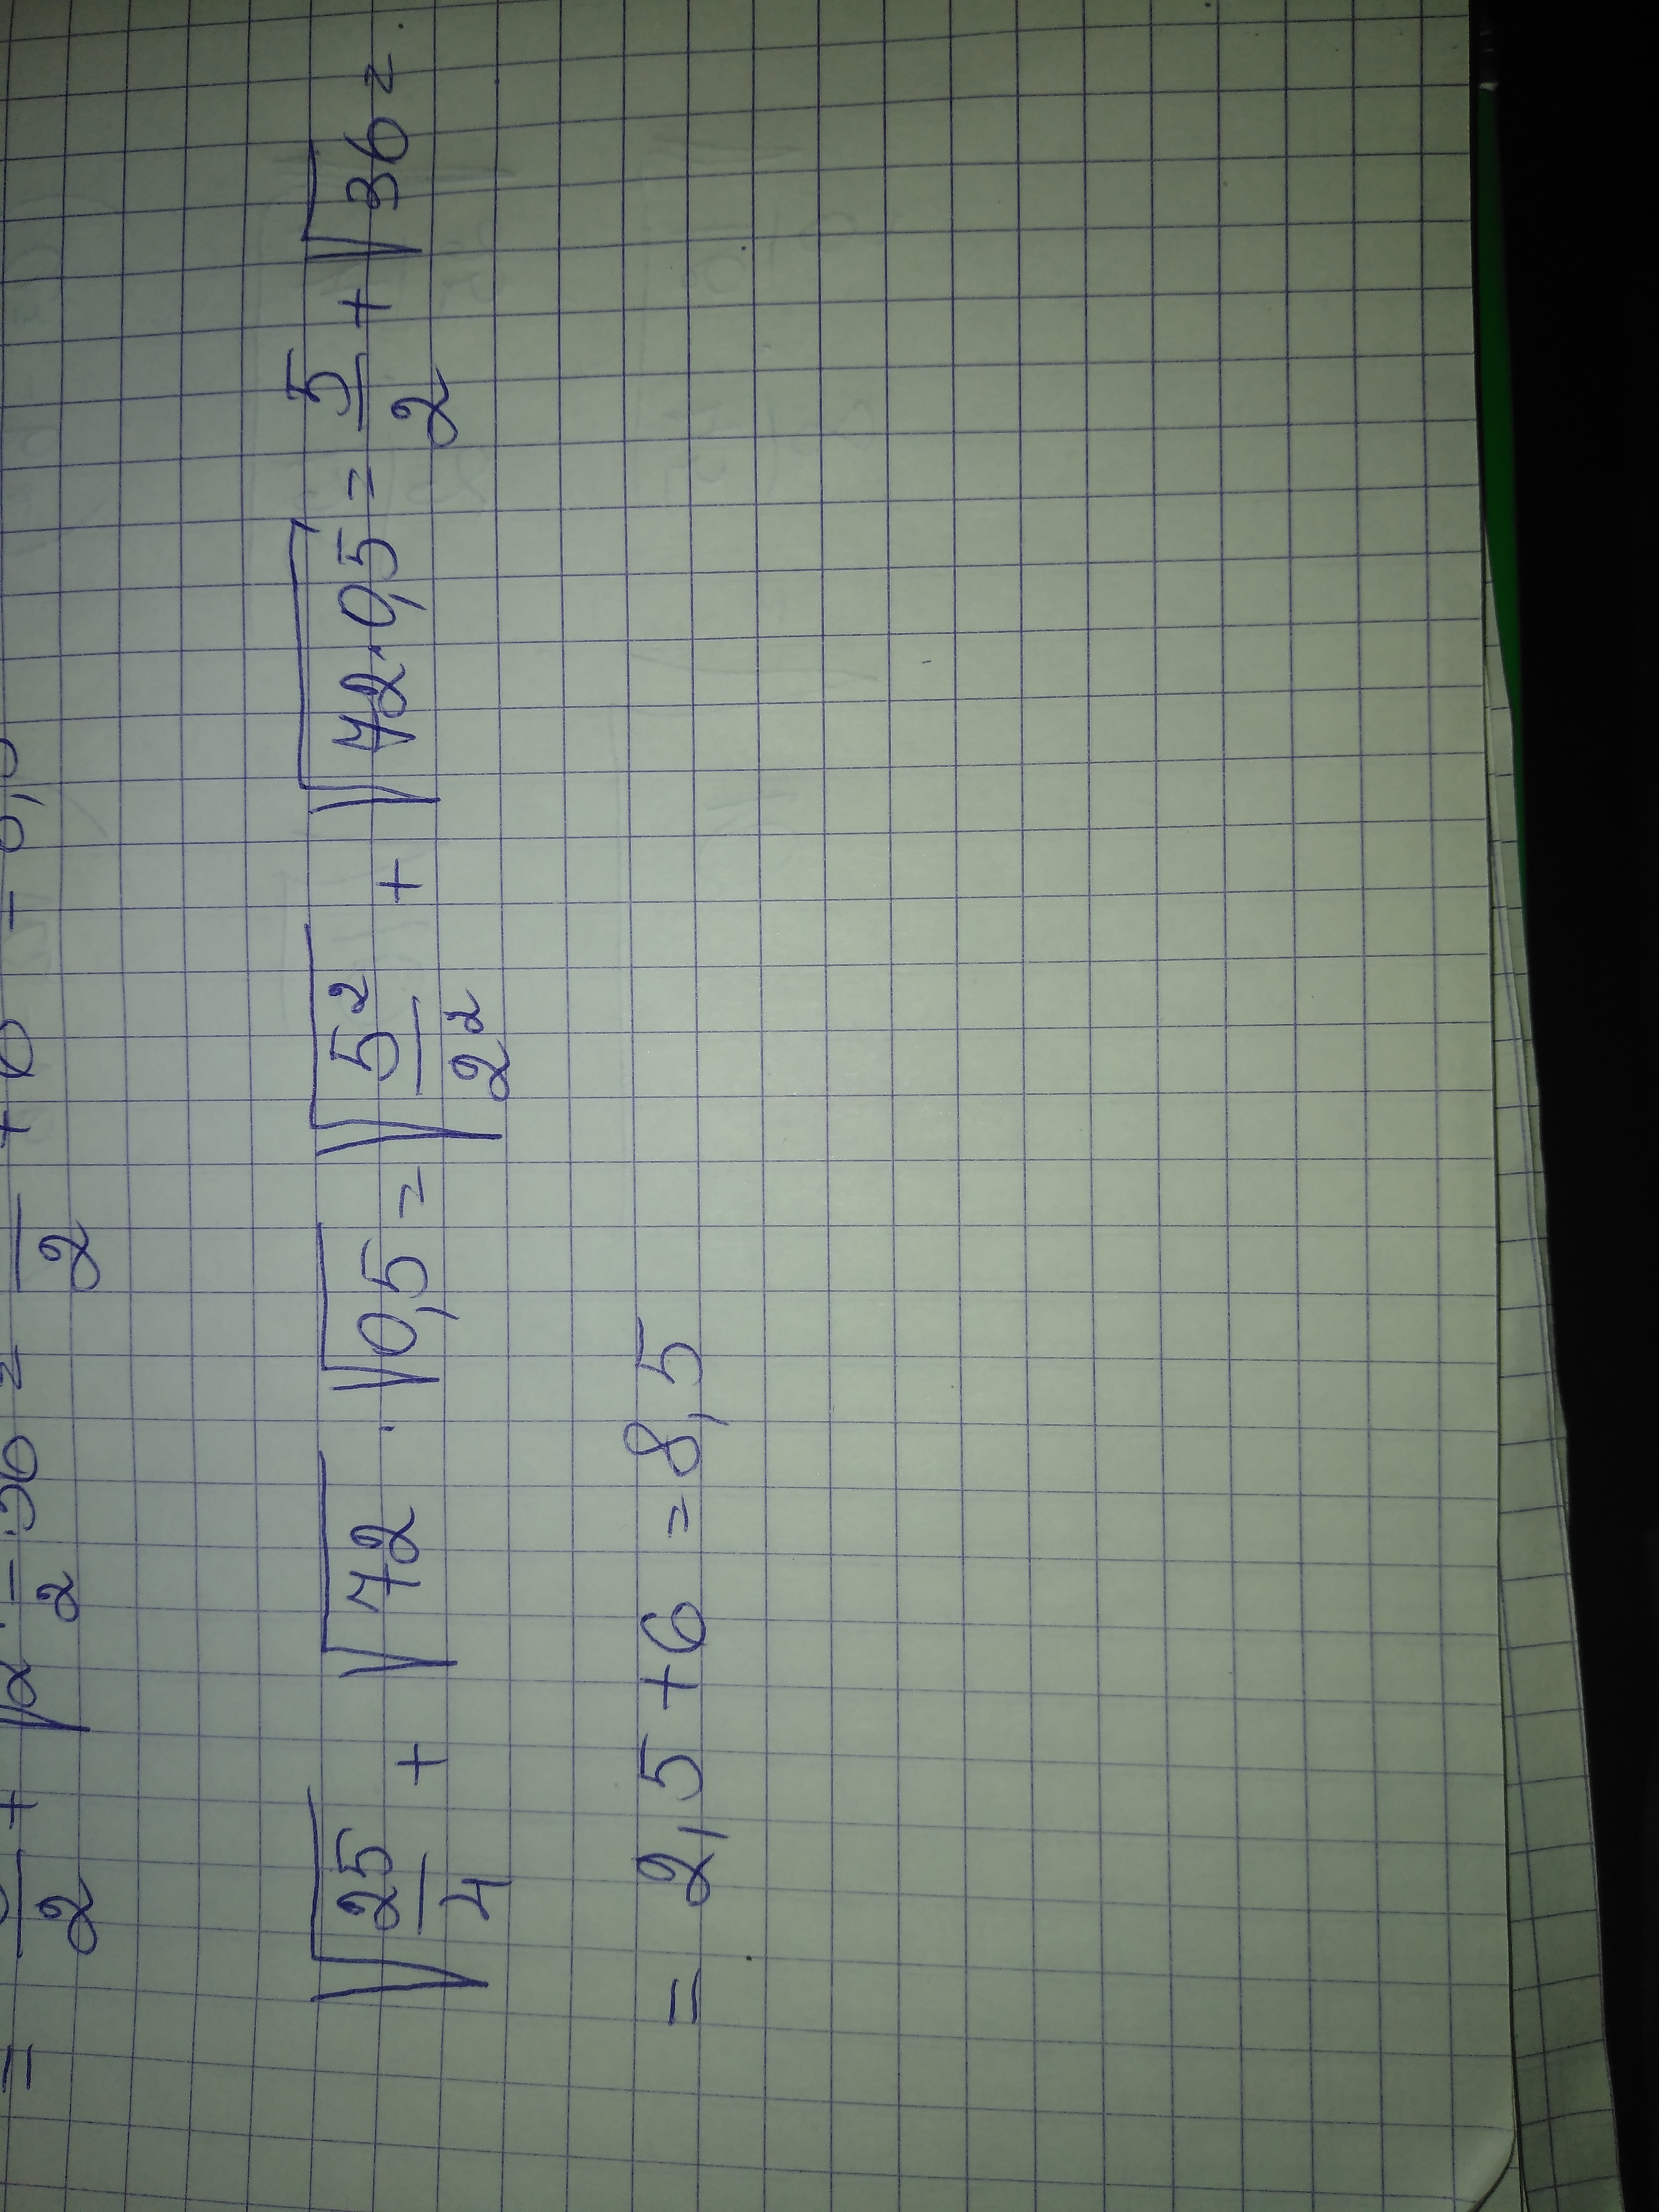 √(25/4) + √72 · √0,5 = √(5²/2²) + √(72·0,5) = 5/2 + √36 =
= 2,5 + 6 = 8,5